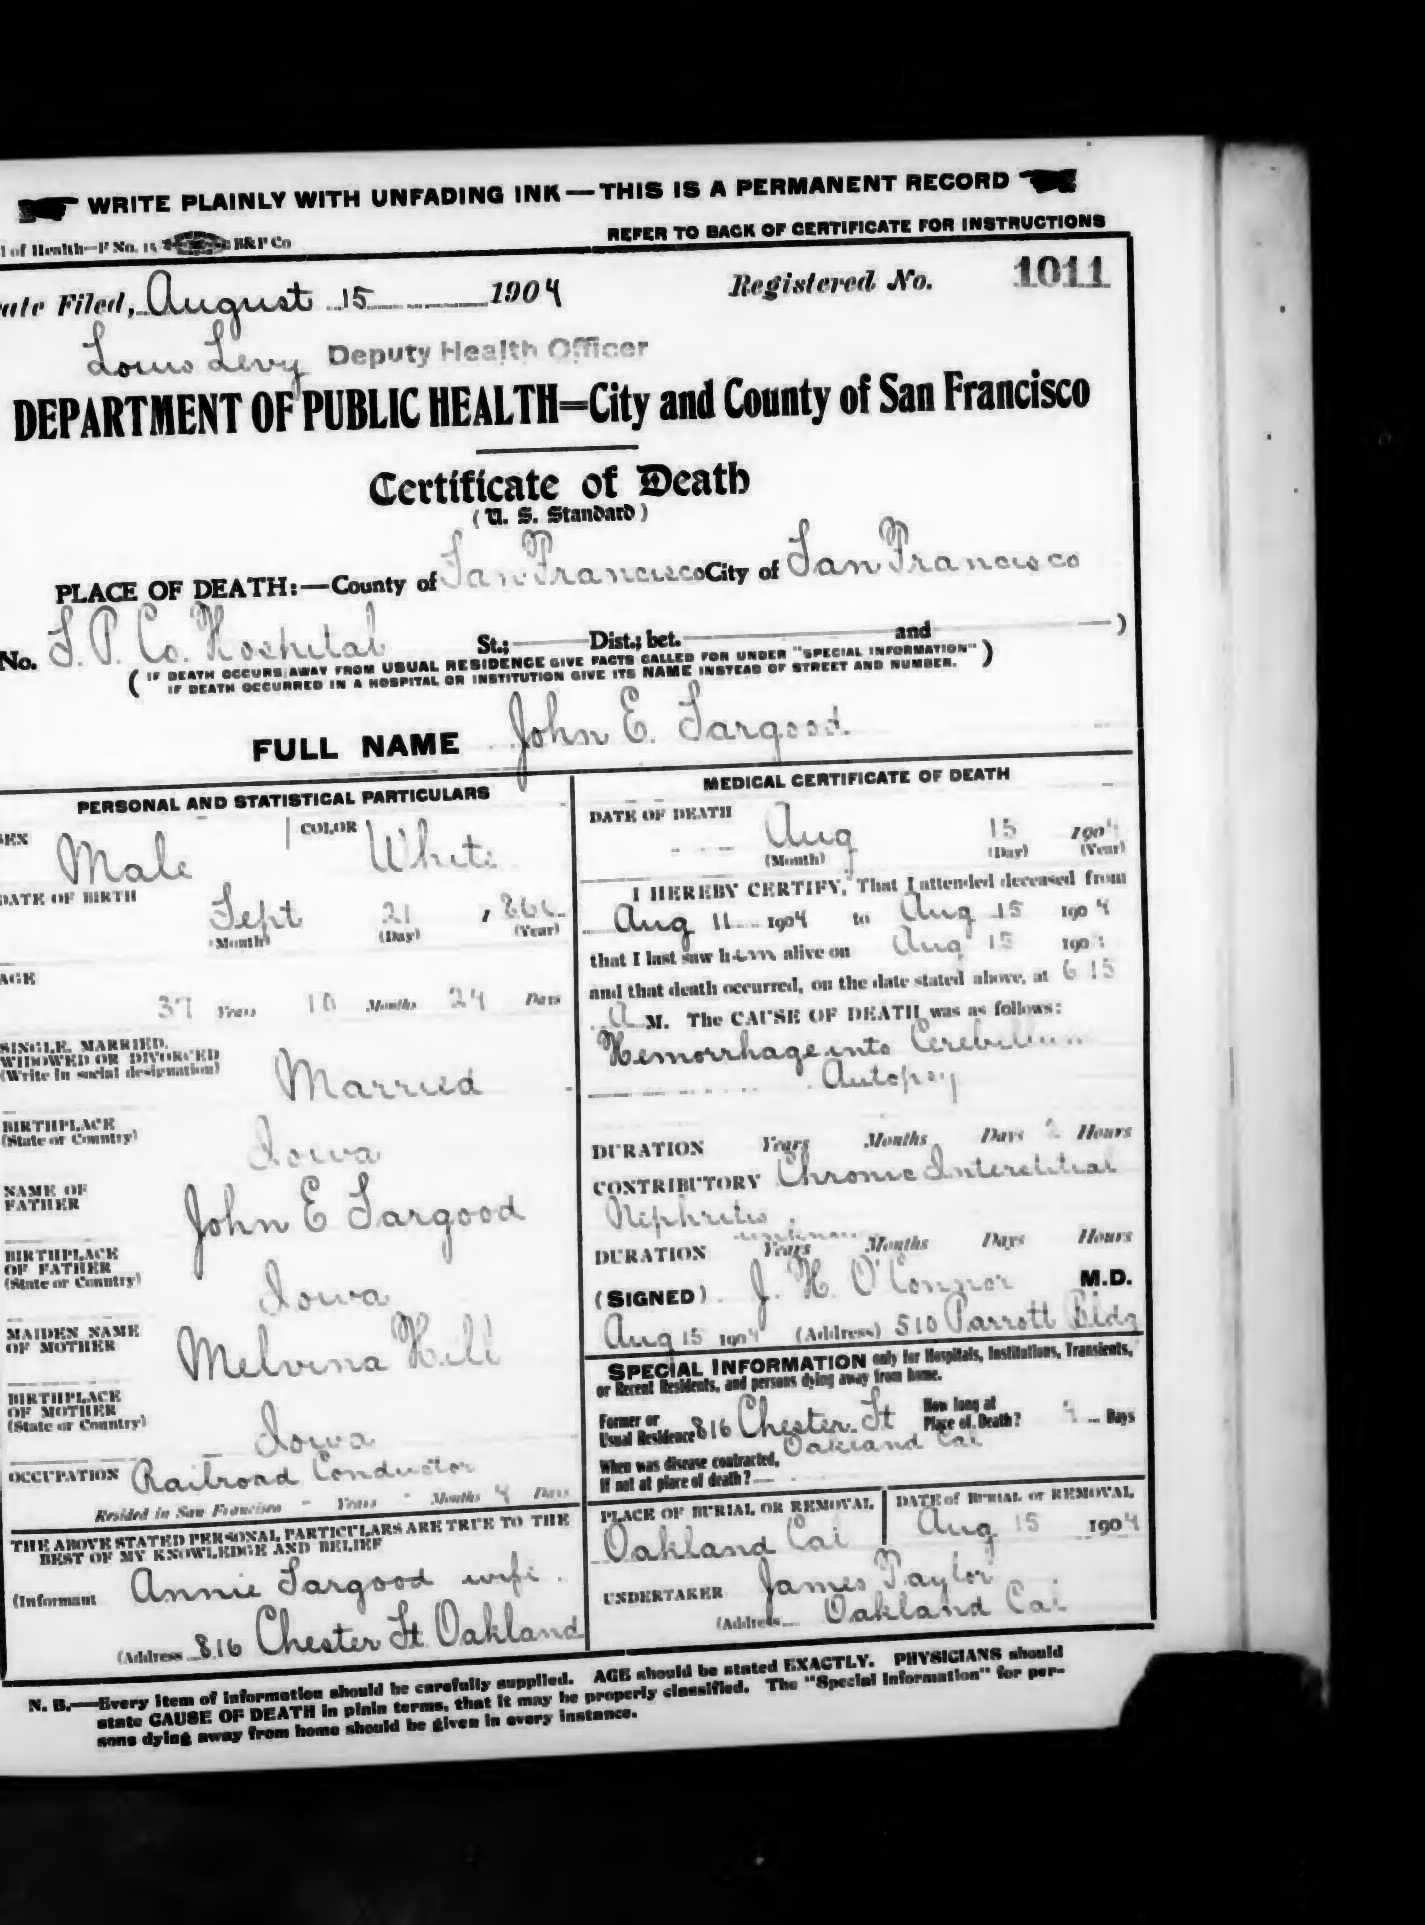 WRITE PLAINLY WITH UNFADING INK — THIS IS A PERMANENT RECORD
l of Health—F No. 15 B&P Co REFER TO BACK OF CERTIFICATE FOR INSTRUCTIONS
ate Filed, August 15 1904 Registered No. 1011
Louis Levy Deputy Health Officer
DEPARTMENT OF PUBLIC HEALTH=City and County of San Francisco
Certificate of Death
(U. S. Standard)
PLACE OF DEATH:—County of San Francisco City of San Francisco
No. S. P. Co. Hospital St.; Dist.; bet. and )
( IF DEATH OCCURS AWAY FROM USUAL RESIDENCE GIVE FACTS CALLED FOR UNDER "SPECIAL INFORMATION" )
IF DEATH OCCURRED IN A HOSPITAL OR INSTITUTION GIVE ITS NAME INSTEAD OF STREET AND NUMBER.
FULL NAME John E. Sargood.
PERSONAL AND STATISTICAL PARTICULARS
SEX Male COLOR White
DATE OF BIRTH
Sept 21
(Month) (Day) (Year)
AGE
37 Years 10 Months 24 Days
SINGLE, MARRIED,
WIDOWED OR DIVORCED
(Write in social designation)
Married
BIRTHPLACE
(State or Country)
Iowa
NAME OF
FATHER
John E Sargood
BIRTHPLACE
OF FATHER
(State or Country)
Iowa
MAIDEN NAME
OF MOTHER
Melvina Hill
BIRTHPLACE
OF MOTHER
(State or Country)
Iowa
OCCUPATION Railroad Conductor
Resided in San Francisco - Years - Months 4 Days
THE ABOVE STATED PERSONAL PARTICULARS ARE TRUE TO THE
BEST OF MY KNOWLEDGE AND BELIEF
(Informant Annie Sargood wife.
(Address 816 Chester St. Oakland
MEDICAL CERTIFICATE OF DEATH
DATE OF DEATH
Aug 15 1904
(Month) (Day) (Year)
I HEREBY CERTIFY, That I attended deceased from
Aug 11 1904 to Aug 15 1904
that I last saw him alive on Aug 15 1904
and that death occurred, on the date stated above, at 6 15
A M. The CAUSE OF DEATH was as follows:
Hemorrhage into Cerebellum
Autopsy
DURATION Years Months Days 2 Hours
CONTRIBUTORY Chronic Interstitial
Nephritis.
DURATION Years Months Days Hours
(SIGNED) J. H. O'Connor M.D.
Aug 15 1904 (Address) 510 Parrott Bldg
SPECIAL INFORMATION only for Hospitals, Institutions, Transients,
or Recent Residents, and persons dying away from home.
Former or
Usual Residence 816 Chester St
How long at
Place of Death? 4 Days
Oakland Cal
When was disease contracted,
If not at place of death?
PLACE OF BURIAL OR REMOVAL
Oakland Cal
DATE of BURIAL or REMOVAL
Aug 15 1904
UNDERTAKER James Taylor
(Address Oakland Cal
N. B.—Every item of information should be carefully supplied. AGE should be stated EXACTLY. PHYSICIANS should
state CAUSE OF DEATH in plain terms, that it may be properly classified. The "Special Information" for per-
sons dying away from home should be given in every instance.